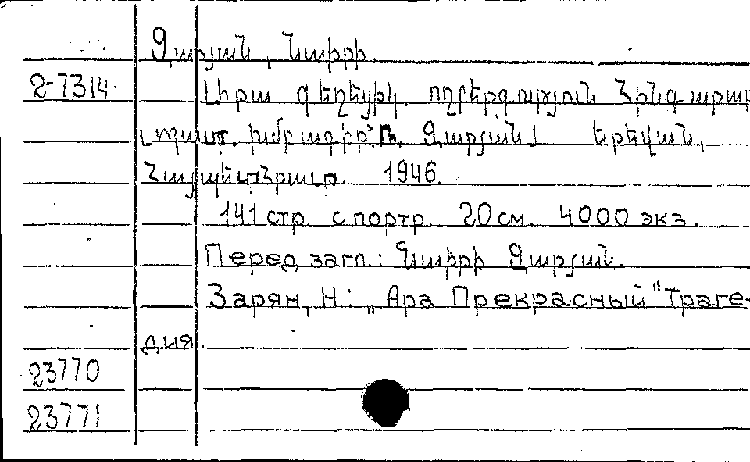 Զարյան, Նաիրի.
2-7314 Արա գեղեցիկ. ողբերգություն հինգ արար
[պատ. խմբագիր՝ Ռ. Զարյան] Երեվան,
Հայպետհրատ. 1946.
141 стр. с портр. 20 см. 4000 экз.
Перед загл.: Նաիրի Զարյան.
Зарян, Н: „Ара Прекрасный" Траге-
дия.
23770
23771